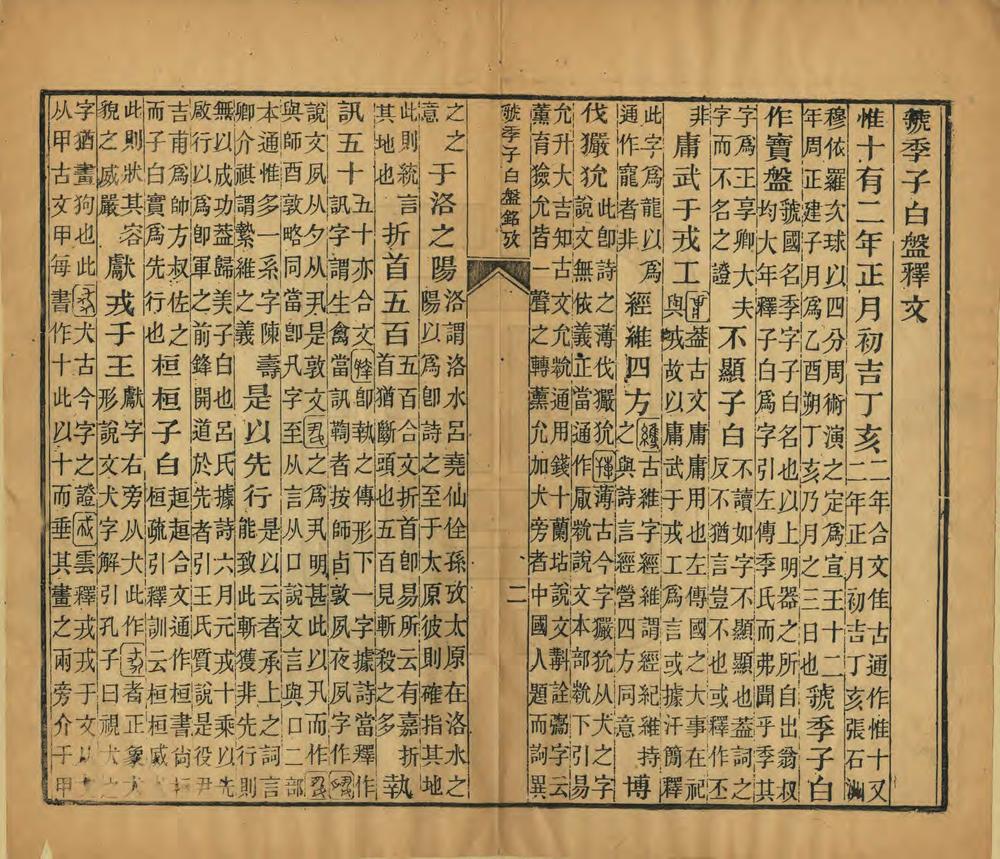 虢季子白盤釋文
惟十有二年正月初吉丁亥二年合文隹古通作惟十又
二年正月初吉丁亥張石洲
穆依羅次球以四分周術演之定為宣王十二
年周正建子月為乙酉朔丁亥乃月之三日也虢季子白
作寶盤虢國名季字子白名也以上明器之所自出翁叔
均大年釋子白為字引左傳季氏而弗聞乎季其
字爲王享卿大夫
字而不名之證不顯子白不讀如字不顯顯也蓋詞之
反不猶言豈不也或釋作丕
非庸武于戎工葢古文庸庸用也左傳國之大事在祀
與戎故以庸武于戎工爲言或據汗簡釋
此字爲龍以爲
通作寵者非經維四方古維字經維謂經紀維持
之與詩言經營四方同意博
伐玁狁此即詩之薄伐玁狁薄古今字玁狁从犬之字
說文無依義正當通作厰㹞說文本部㹞下引易
允升大吉知古文允㹞通用錢十蘭坫說文斠詮字云
薰育獫允皆一聲之轉薰允加犬旁者中國人題而訽異
虢季子白盤銘攷 二
之之
意于洛之陽洛謂洛水呂堯仙佺孫攷太原在洛水之
陽以爲卽詩之至于太原彼則確指其地
此則統言
其地也折首五百五百合文折首卽易所云有嘉折
首猶斷頭也五百見斬殺之多執
訊五十五十亦合文卽執之傳形下一字據詩當釋作
訊字謂生禽當訊鞫者按師敦夙夜夙字作
說文夙从夕从丮是敦文之爲丮明甚此以丮而作
與師酉敦略同當卽丮字至从言从口說文言與口二部
本通惟多一系字陳壽
卿介祺謂縶維之義是以先行是以云者承上之詞言
能致此斬獲非先行則
無以成功葢歸美子白也呂氏據詩六月元戎十乘以先
啟行以爲卽軍之前鋒開道於先者引王氏質說是役尹
吉甫爲師方叔佐之
而子白實爲先行也桓桓子白趄趄合文通作桓桓書尙桓
桓疏引釋訓云桓桓威
此則狀其容
貌之威嚴獻戎于王獻字右旁从犬此作者正象犬
形說文犬字解引孔子曰視犬之
字猶畫狗也此犬古今字之證雲釋戎戎于文以
从甲古文甲每書作十此以十而垂其畫之兩旁介于甲